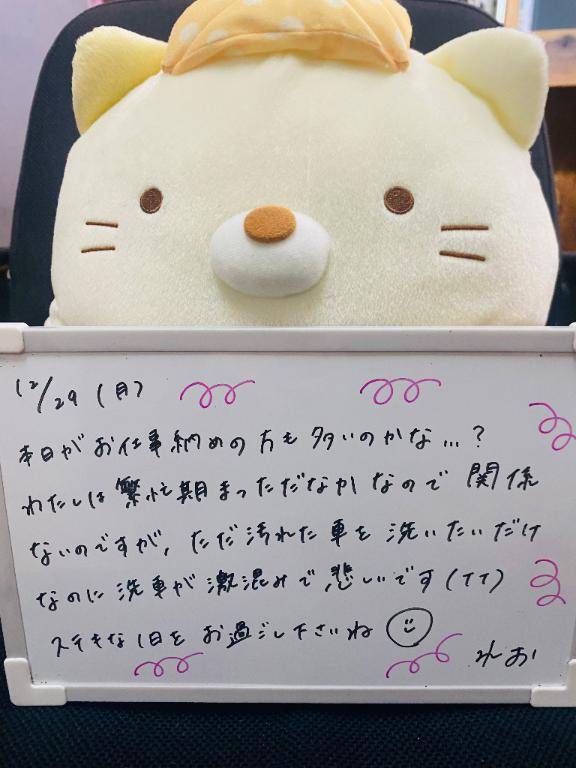 12/29(月)
本日がお仕事納めの方も多いのかな...?
わたしは繁忙期まっただなかなので関係
ないのですが、ただ汚れた車を洗いたいだけ
なのに洗車が激混みで悲しいです(TT)
ステキな1日をお過ごし下さいね
れお